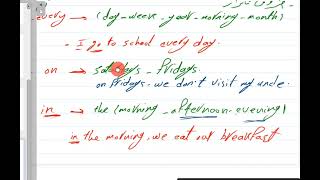 every → (day - week - year - morning - month)
- I go to school every day.
on → saturdays - Fridays.
on Fridays. we don't visit my uncle.
in → the (morning - afternoon - evening)
in the morning, we eat our breakfast